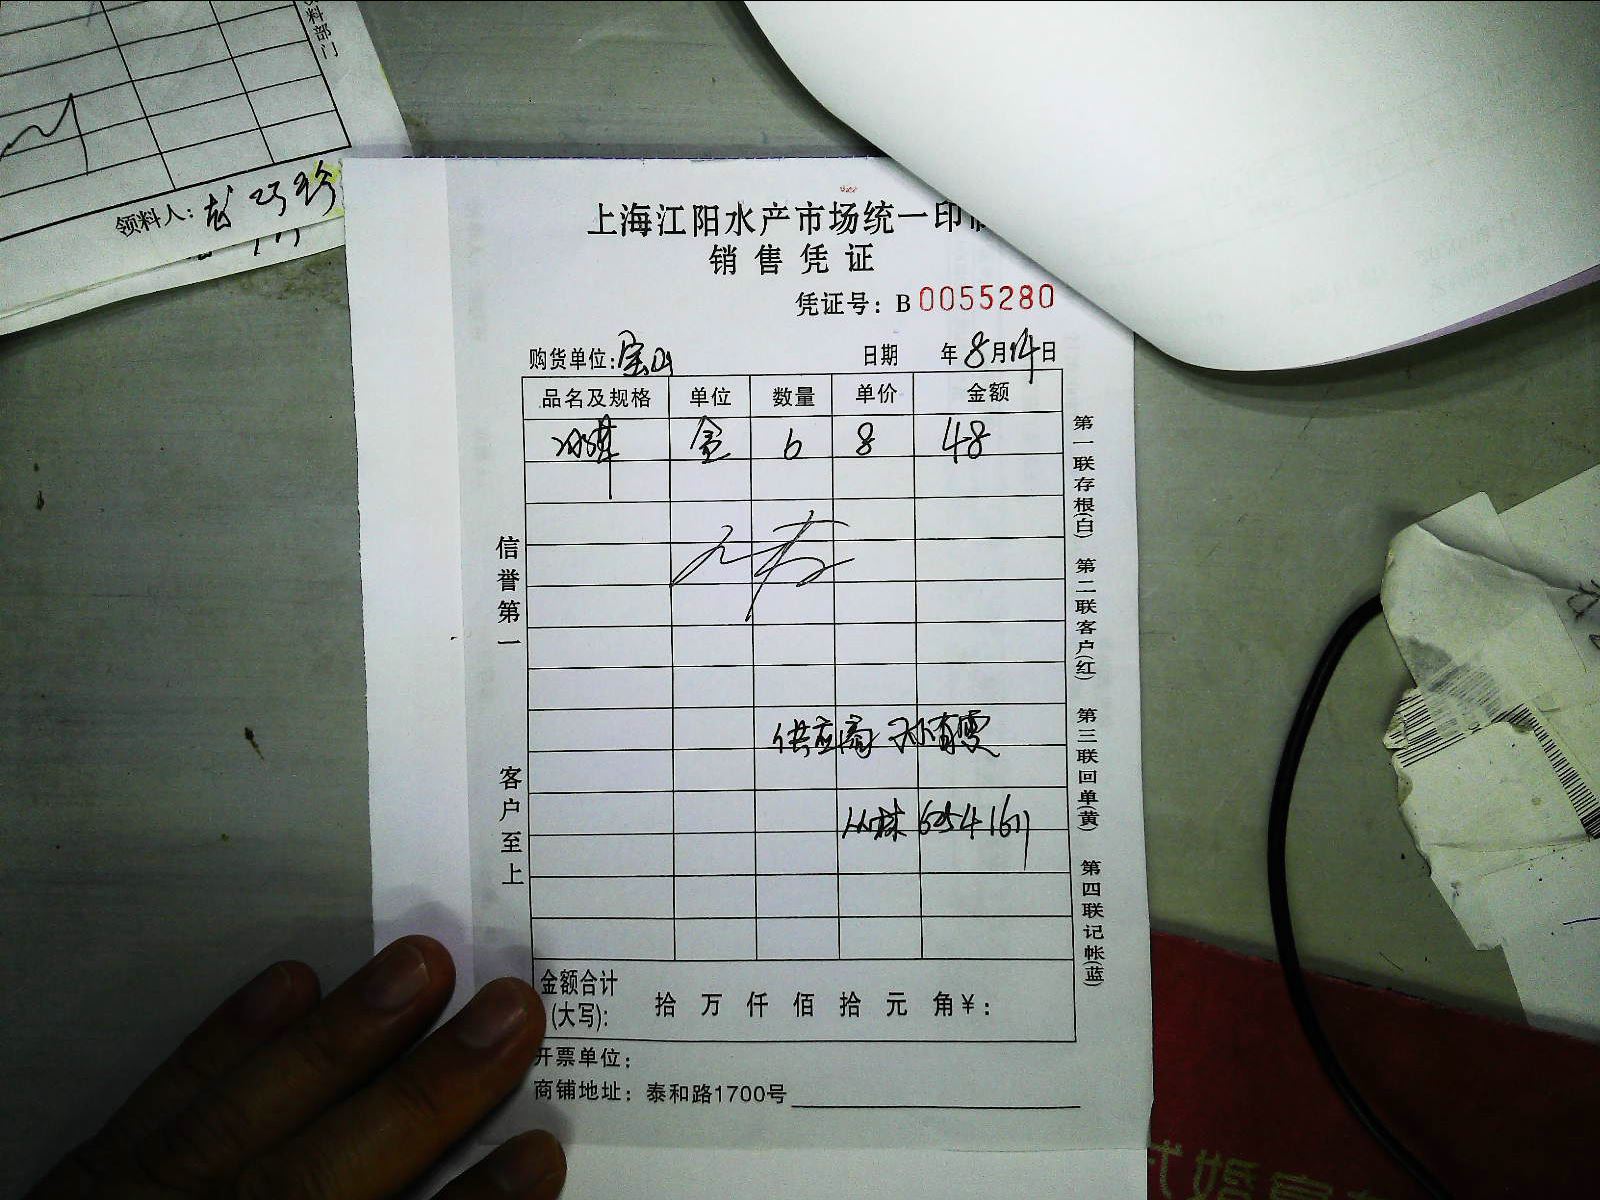 料部门
领料人：
上海江阳水产市场统一印
销售凭证
凭证号：B 0055280
购货单位：宝山
日期 年 8 月 14 日
品名及规格 单位 数量 单价 金额
6 8 48
供应商 孙育雯
6541611
金额合计
(大写)：
拾 万 仟 佰 拾 元 角 ¥：
开票单位：
商铺地址：泰和路1700号
信誉第一
客户至上
第一联存根(白)
第二联客户(红)
第三联回单(黄)
第四联记帐(蓝)